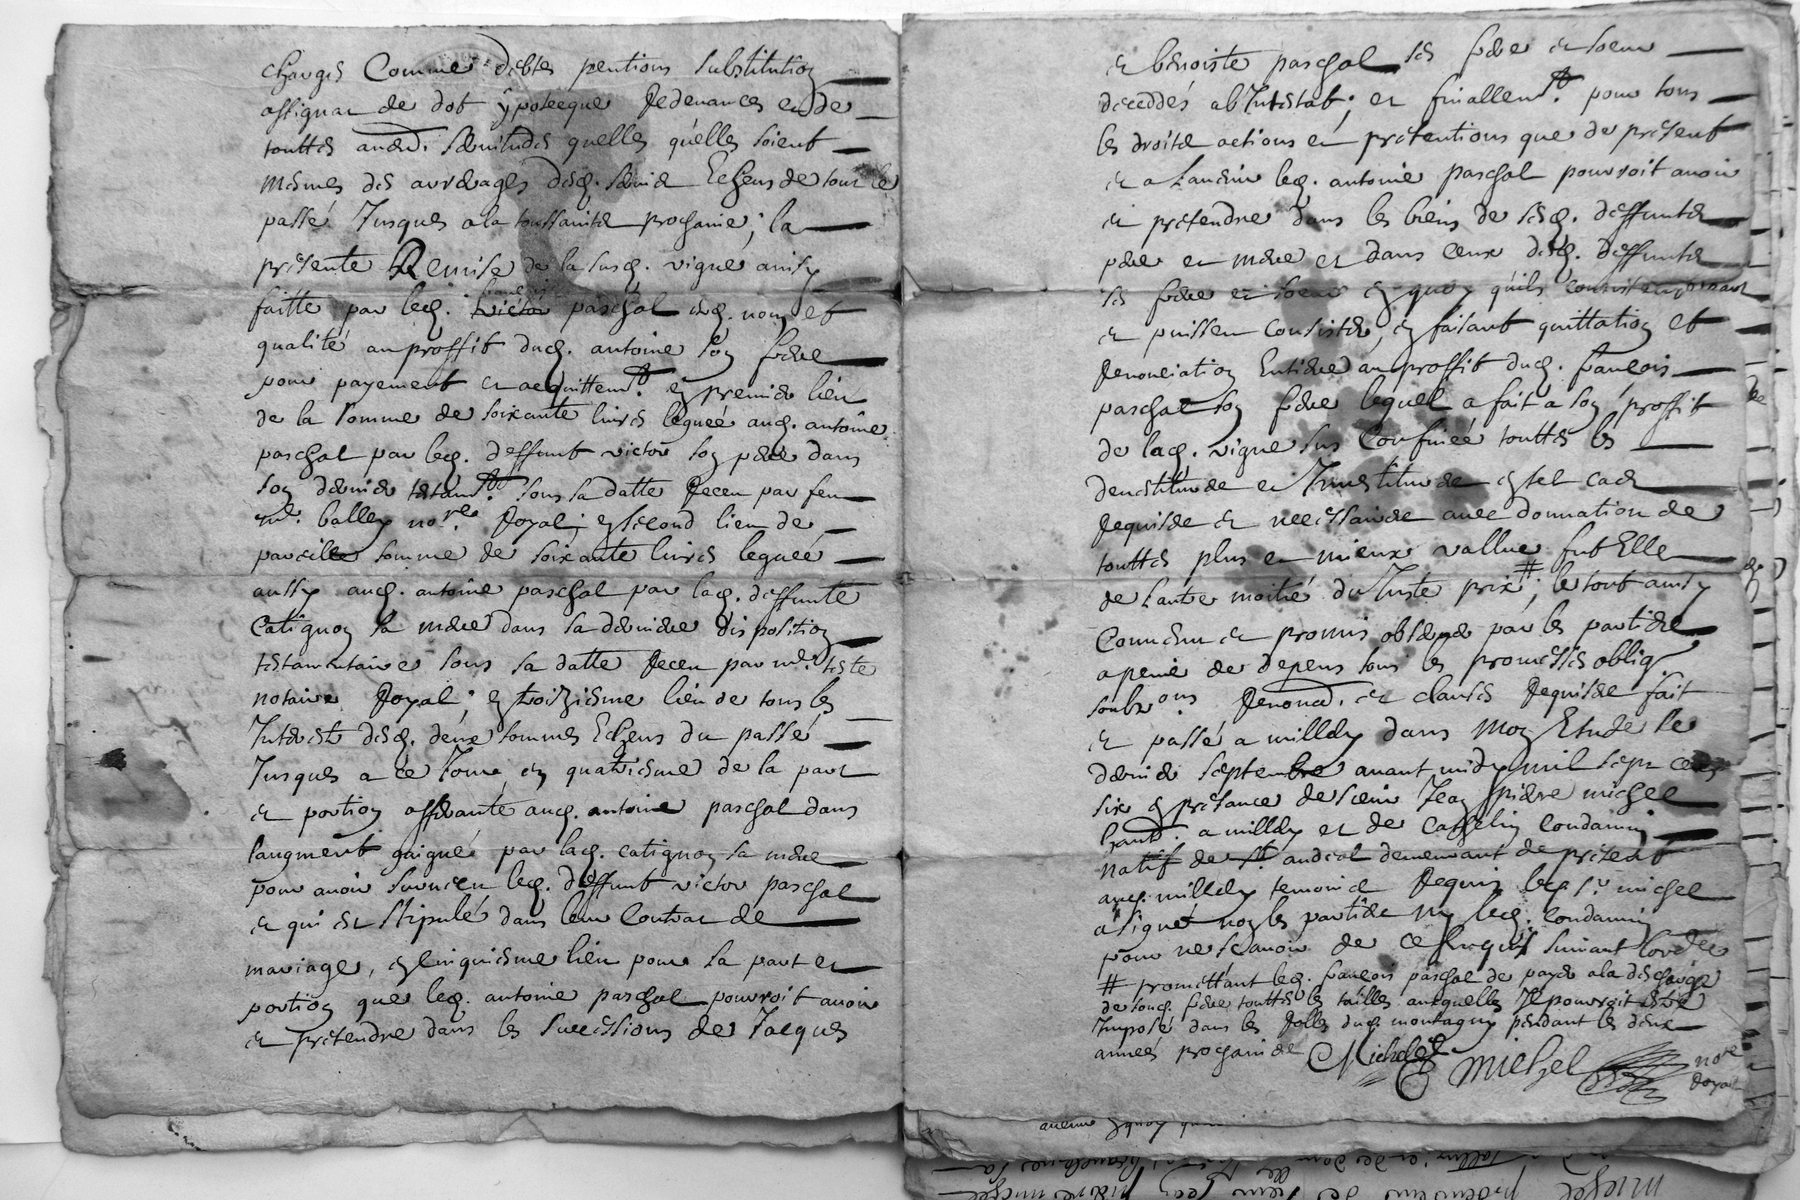 charges Comme debtes pentions substitution
assignat de dot ypotecque Redevances et de
touttes autres servitudes quelles quelles soient
mesmes des arrerages desd. servis Echeus de tout le
passé Jusques a la toussaintz prochaine, la
presente Remise de la susd. vigne ainsy
faitte par led. françois paschal aud. nom et
qualité au proffit dud. antoine son frere
pour payement et acquittemt. en premier lieu
de la somme de soixante livres leguée aud. antoine
paschal par led. deffunt victor son pere dans
son dernier testamt. sous sa datte Receu par feu
me. balley nore. Royal; en second lieu de
pareille somme de soixante livres leguée
aussy aud. antoine paschal par lad. deffunte
Catignon sa mere dans sa derniere disposition
testamentaire sous sa datte Receu par me. teste
notaire Royal; en troiziesme lieu de tous les
Interests desd. deux sommes Echeus du passé
Jusques a ce Jour, en quatriesme de la part
et portion afferante aud. antoine paschal dans
laugment gaigné par lad. catignon sa mere
pour avoir survescu led. deffunt victor paschal
et qui est stipulé dans leur Contrat de
mariage, en cinquiesme lieu pour la part et
portion que led. antoine paschal pouvoit avoir
et pretendre dans les successions de Jacques
et benoiste paschal ses frere et soeur
deceddés abIntestat; et finallemt. pour tous
les droits actions et pretentions que de present
et a Lavenir led. antoine paschal pourroit avoir
et pretendre dans les biens de sesd. deffunts
pere et mere et dans ceux desd. deffunts
ses frere et soeur en quoy quils consistent
et puissent consister, en faisant quittation et
Renonciation Entiere au proffit dud. françois
paschal son frere lequel a fait a son proffit
de lad. vigne sus Confinée touttes les
devestitures et Investitures en tel cas
Requises et necessaires avec donnation de
touttes plus et mieux vallue fut Elle
de Lautre moitié du Juste prix #; le tout ainsy
Convenu et promis observer par les parties
a peine de depens sous les promesses oblig
soubzons. Renonc. et clauses Requises fait
et passé a millery dans mon Etude le
dernier septembre avant midy mil sept cents
six en presance de sieur Jean pierre michel
a millery et de Condamin
natif de st. andeol demeurant de present
aud. millery temoins Requis led. sr. michel
a signé non les parties ny led. Condamin
pour ne scavoir de ce Requis suivant lordre
# promettant led. françois paschal de payer a la descharge
de sond. frere touttes les tailles auxquelles Il pourroit estre
Imposé dans les Rolles dud. montagny pendant les deux
années prochaines Michel
michel nore
Royal